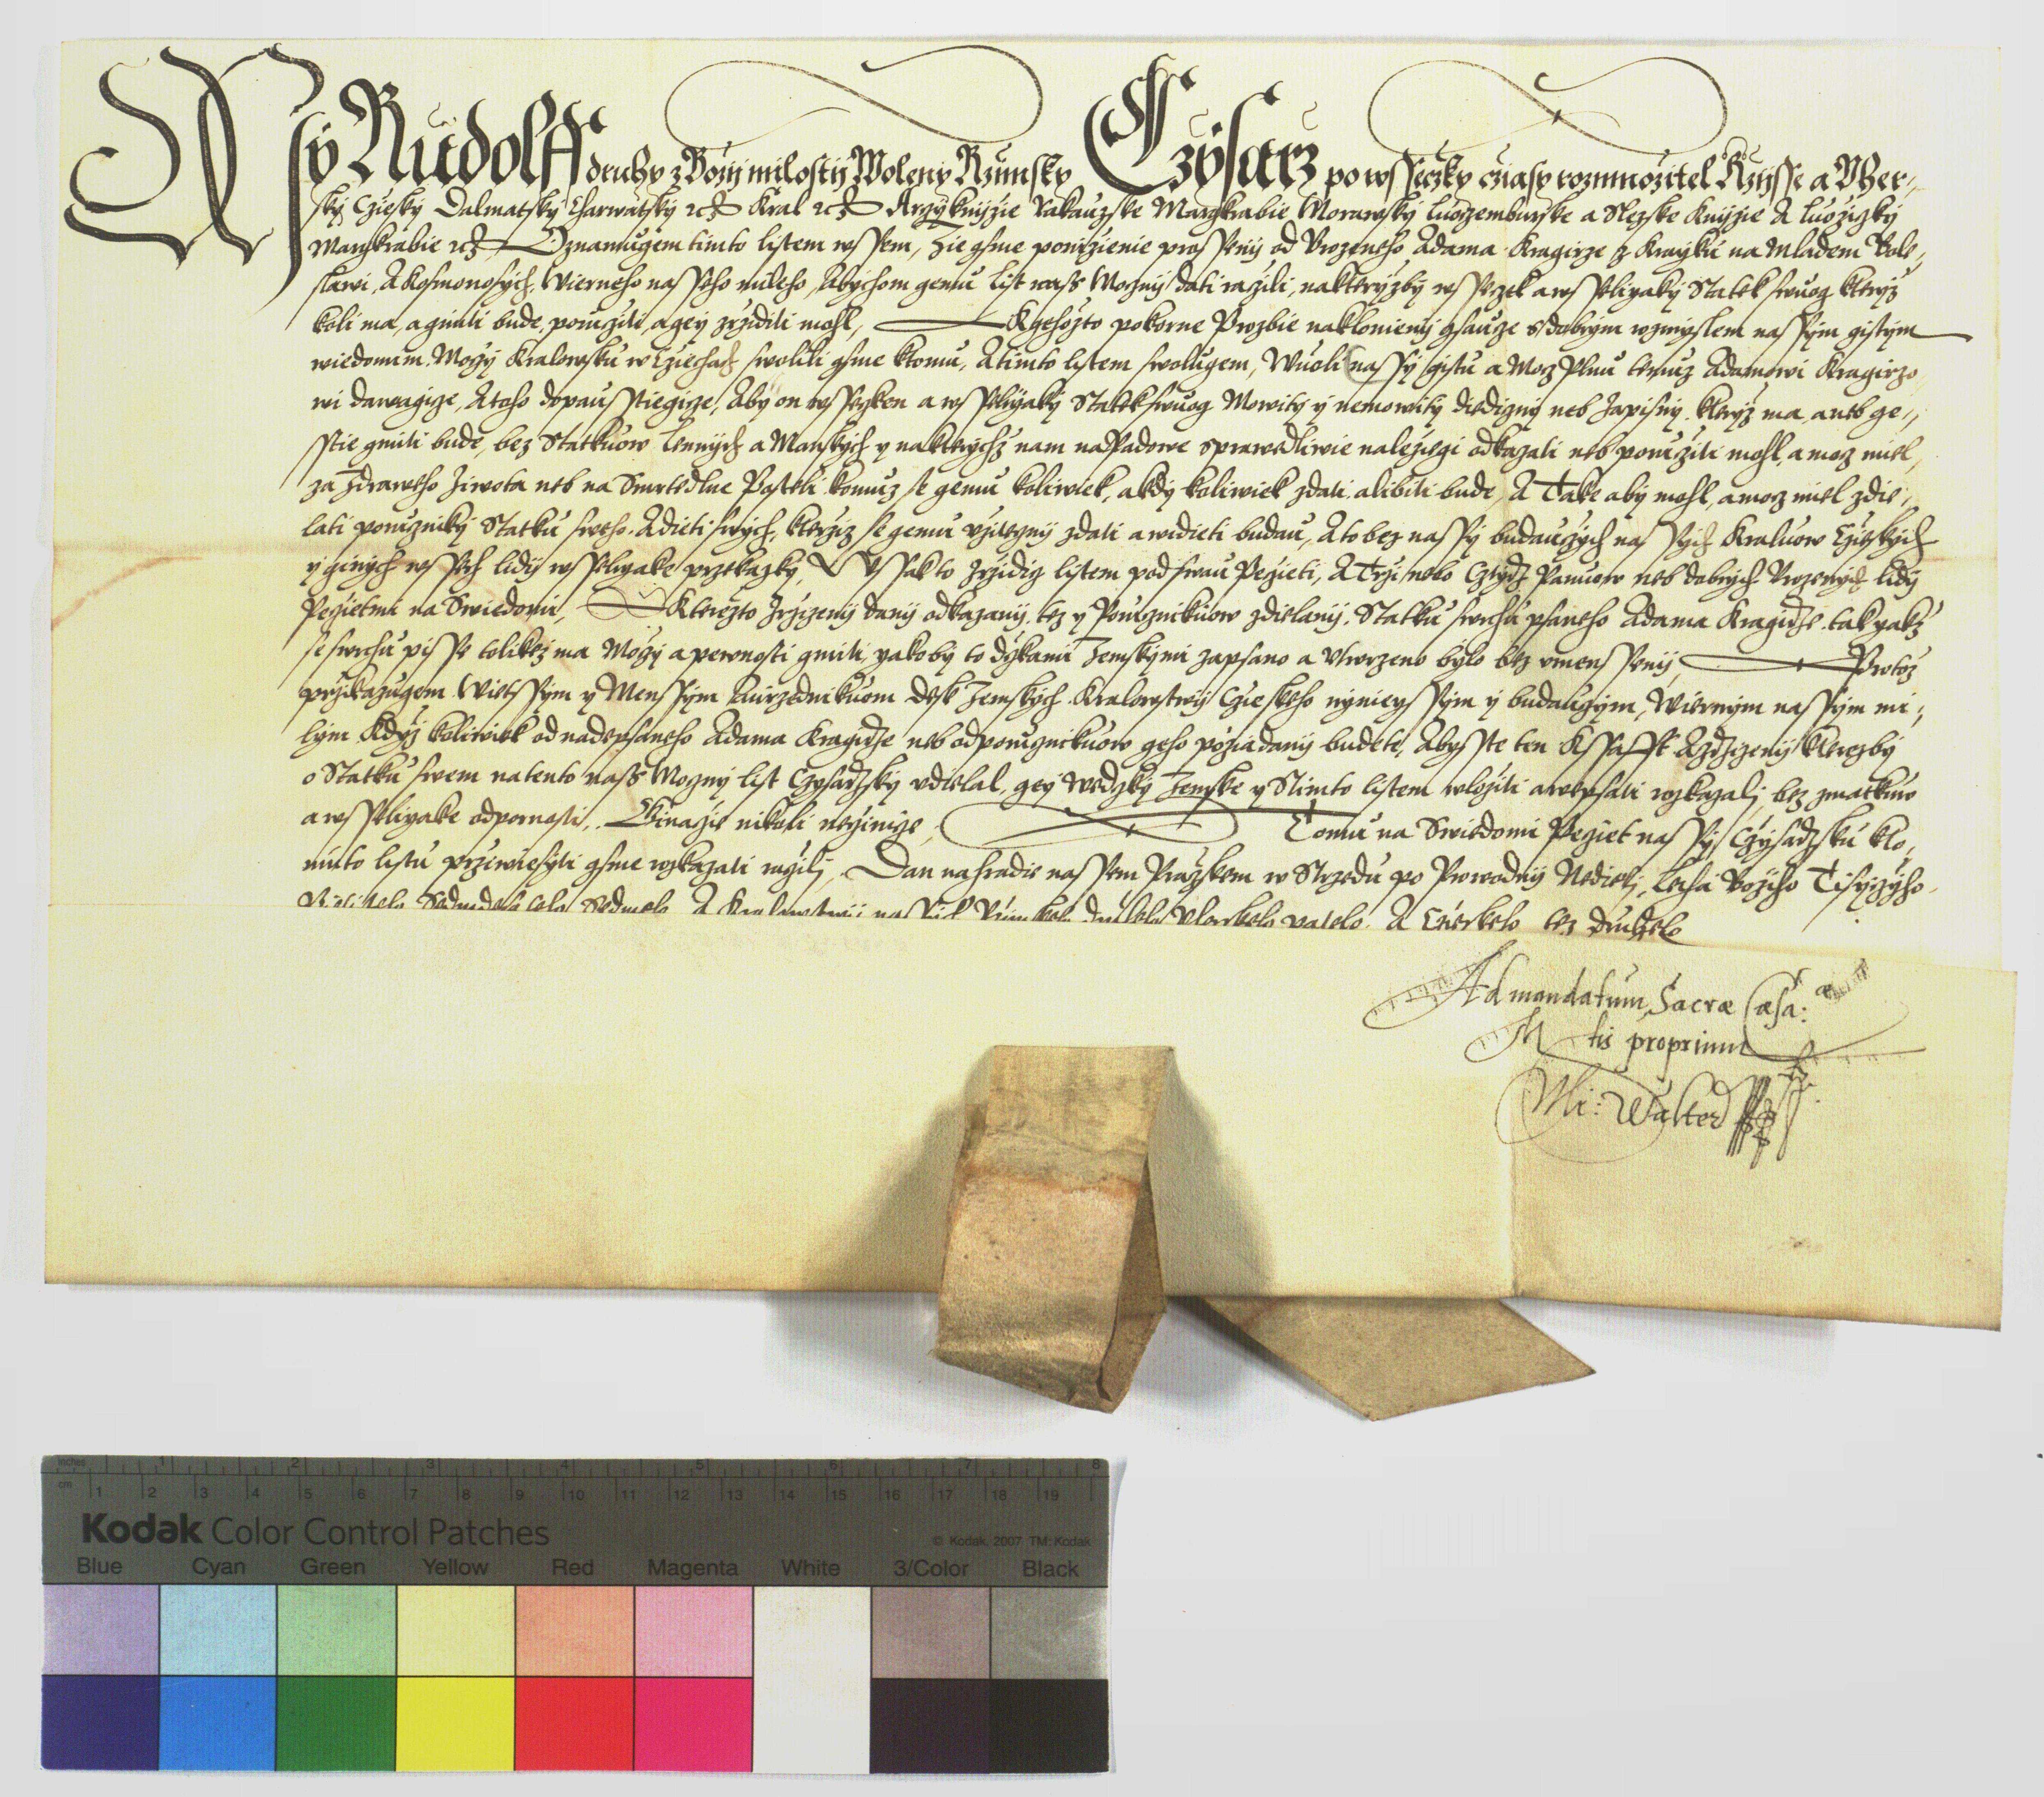 My Rudolff druhy z Bozij milostij Woleny Rzimsky Czysarz po wssecky cziasy rozmnozitel Rzijsse a Vher,,
sky Cziesky Dalmatsky Charwatsky etc Kral etc Arzyknijzie Rakauzske Margkrabie Morawsky Lucemburske a Slezske Knijzie A Luozizky
Margkrabie etc Oznamugem timto listem wssem, Zie gsme ponizienie prosseni od Vrozeneho Adama Kragirze z Kraygku na Mladem Bole,
slawi, A Kosmonosych, Wierneho nasseho mileho, Abychom gemu list nass Moczny dati razili, na kteryzby wssezek a wsseligaky Statek swuog kteryz
koli ma, a gmiti bude, poruziti, a gey zrziditi mohl, K gehozto pokorne Prozbie naklonieny gsauze s dobrym rozmyslem nassym gistym
wiedomim Mozy Kralowsku w Cziechach swolili gsme k tomu, A timto listem swolugem, Wuoli nassy gistu a Moz Plnu temuz Adamowi Kragirzo
wi dawagize, A toho dopausstiegize, Aby on wssezken a wsseligaky Statek swuog Mowity y nemowity diedizny neb Zapisny, kteryz ma, a neb ge,,
sstie gmiti bude, bez Statkuow Lennych a Manskych y na kterychz nam naPadowe sprawedliwie nalezegi odkazati neb poruziti mohl, a moz miel,
za Zdraweho Ziwota neb na Smrtedlne Posteli komuz se gemu koliwiek, a kdy koliwiek zdati, a libiti bude, A Take aby mohl, a moz miel zdie,
lati poruzniky Statku sweho A dieti swych, kterziz se gemu vzitezny zdati a widieti budau, A to bez nassy budauzych nassych Kraluow Czeskych
y ginych wssech lidij wsseligake przekazky, Wssak to Zrzidiz listem pod swau Peczieti, A Trzi nebo Cztyrz Panuow neb dobrych Vrozenych lidy
Peczietmi na Swiedomi, Kterezto Zrzizeny dany odkazany, tez y Poruznikuow zdielany, Statku swrchu psaneho Adama Kragirze, tak yakz
se swrchu pisse tolikez ma Mozy a pewnosti gmiti, yakoby to dskami Zemskymi zapsano a vtwrzeno bylo bez vmensseny, Protoz
przikazugem Wietssym y Menssym Auržednikuom Desk Zemskych Kralowstwij Czieskeho nynieyssym y budauczym, Wiernym nassym mi,
lym Kdyz koliwiek od nadepsaneho Adama Kragirze neb od poruznikuow geho poziadany budete, Abysste ten Kssafft A Zrzizeny kterezby
o Statku swem na tento nass Moczny list Czysarzsky vdielal, gey We dsky Zemske y s timto listem wloziti a wepsati rozkazali bez zmatkuw
a wsseligake odpornosti, Ginacze nikoli neczinize, Tomu na Swiedomi Peczet nassy Czysarzsku k to,
muto listu przywiesyti gsme rozkazati razili, Dan na hradie nassem Prazskem w Strzedu po Prowodny Nedieli, Letha Bozyho Tisyzyho
Pietisteho Sedmdesateho Sedmeho A Kralowstwij nassich Rzimskeho druheho Vherskeho pateho A Czieskeho tez druheho
Ad mandatum Sacræ Cæsa: æ
Mtis proprium
Mi: Walter